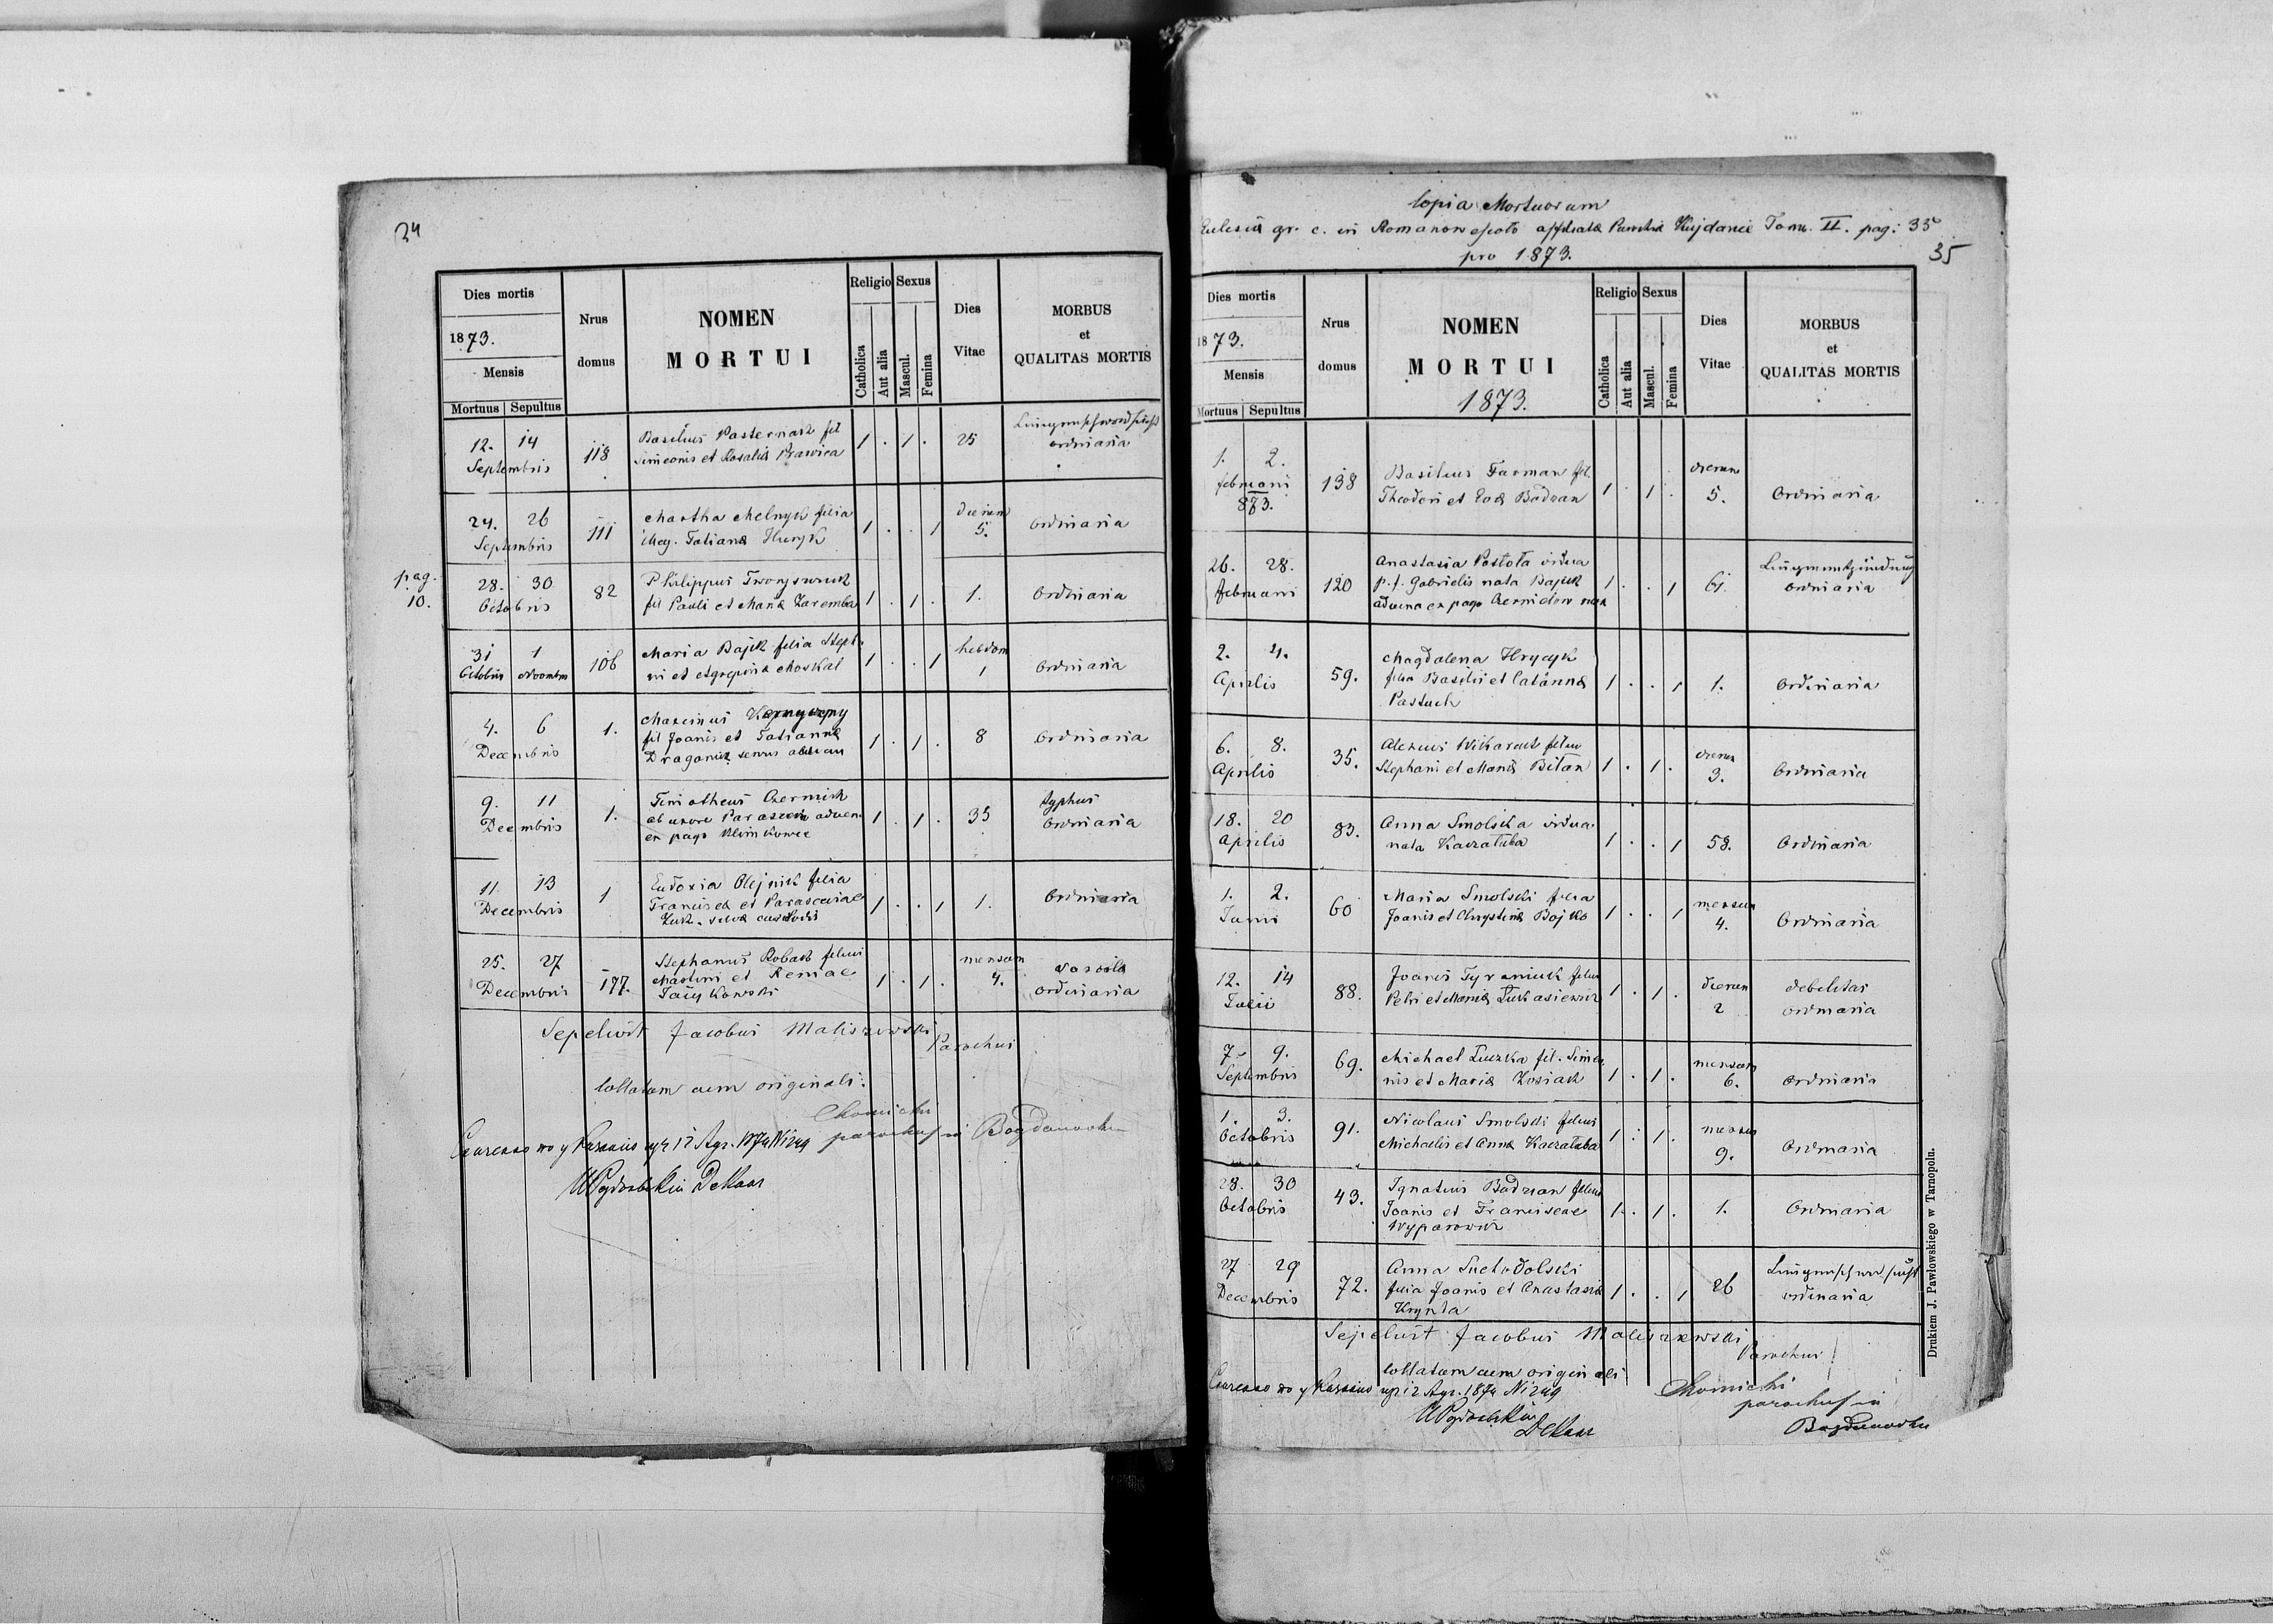 34
Dies mortis
1873.
Mensis
Mortuus Sepultus
Nrus
domus
NOMEN
MORTUI
Religio Sexus
Catholica
Aut alia
Mascul.
Femina
Dies
Vitae
MORBUS
et
QUALITAS MORTIS
12. 14
Septembris
118
Basilius Pasternak fil
Simeonis et Rosaliæ
1 . 1 .
25
ordinaria
24. 26
Septembris
111
Martha Melnyk filia
illeg. Tatianæ Hucyk
1 . . 1
dierum
5.
ordinaria
pag.
10.
28. 30
Octobris
82
Philippus
fil Pauli et Mariæ Zaremba
1 . 1 .
1.
ordinaria
31 1
Octobris Novembris
106
Maria Bajik filia Steph
ni et Agrepinæ Moskal
1 . . 1
hebdom
1
ordinaria
4. 6
Decembris
1.
fil Joanis et Tatiannæ
1 . 1 .
8
ordinaria
9. 11
Decembris
1.
Timotheus Czernick
ab uxore advena
ex pago Klimkowce
1 . 1 .
35
typhus
ordinaria
11. 13
Decembris
1
Eudoxia Olejnik filia
Franciscæ et Parasceviae
1 . . 1
1.
ordinaria
25. 27
Decembris
177.
Stephanus Robak filius
Martini et Xeniae
1 . 1 .
mensum
4.
variola
ordinaria
Sepelivit Jacobus Maliszewski
Parochus
Collatum cum originali:
Chomicki
parochus in Bogdanovka
Copia Mortuorum
Eclesiæ gr. c. in Romanowesioło Parochiæ Kujdance Tom. II. pag: 35
pro 1873.
35
Dies mortis
1873.
Mensis
Mortuus Sepultus
Nrus
domus
NOMEN
MORTUI
1873.
Religio Sexus
Catholica
Aut alia
Mascul.
Femina
Dies
Vitae
MORBUS
et
QUALITAS MORTIS
1. 2.
februarii
873.
138
Basilius Farman fil.
Theodori et Evæ Badzan
1 . 1 .
dierum
5.
ordinaria
26. 28.
februarii
120
Anastasia Postoła vidua
p. f. Gabrielis nata Bajuk
advena ex pago
1 . . 1
61.
ordinaria
2. 4.
Aprilis
59.
Magdalena Hrycyk
filia Basilii et
Pastuch
1 . . 1
1.
ordinaria
6. 8.
Aprilis
35.
Alexius Wikaruk filius
Stephani et Mariæ Bilan
1 . 1 .
dierum
3.
ordinaria
18. 20
Aprilis
83.
Anna Smolska vidua
nata Kaczałuba
1 . . 1
58.
ordinaria
1. 2.
Junii
60
Maria Smolski filia
Joanis et Chrystinæ Bojko
1 . . 1
mensum
4.
ordinaria
12. 14
Julii
88.
Petri et Mariæ Łukasiewicz
1 . 1 .
dierum
2
debilitas
ordinaria
7. 9.
Septembris
69.
Michael Łuczka fil. Simeo
nis et Mariæ Kosiak
1 . 1 .
mensum
6.
ordinaria
1. 3.
Octobris
91.
Nicolaus Smolski filius
Michaelis et Annæ Kaczałuba
1 . 1 .
mensum
9.
ordinaria
28. 30
Octobris
43.
Ignatius Badzan filius
Joanis et Franciscae
Wyparowicz
1 . 1 .
1.
ordinaria
27 29
Decembris
72.
Anna Suchodolski
filia Joanis et Anastasiæ
1 . . 1
26
ordinaria
Sepelivit Jacobus Maliszewski
Parochus
Collatum cum originali
Chomicki
parochus in
Bogdanovka
Drukiem J. Pawłowskiego w Tarnopolu.